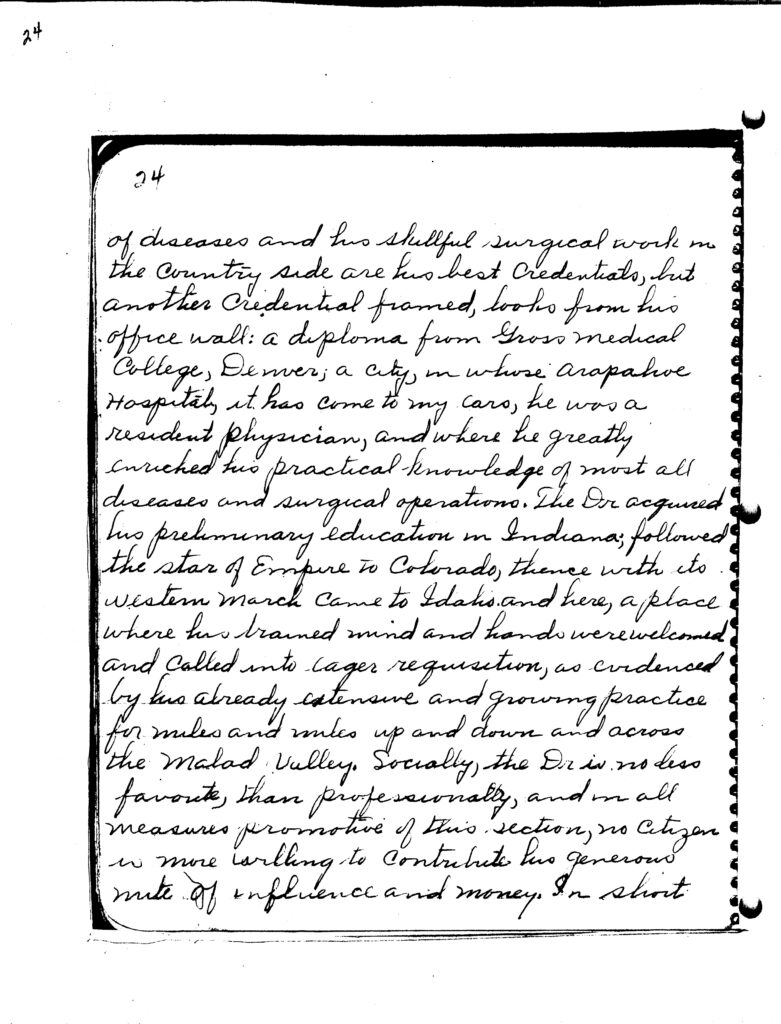 24
24
of diseases and his skillful surgical work in
the Country side are his best Credentials, but
another Credential framed, looks from his
office wall: a diploma from Gross Medical
College, Denver; a city, in whose Arapahoe
Hospital, it has come to my ears, he was a
resident physician, and where he greatly
enriched his practical knowledge of most all
diseases and surgical operations. The Dr acquired
his preliminary education in Indiana; followed
the star of Empire to Colorado, thence with its
western march came to Idaho and here, a place
where his trained mind and hands were welcomed
and called into eager requisition, as evidenced
by his already extensive and growing practice
for miles and miles up and down and across
the Malad Valley. Socially, the Dr is no less
favorite, than professionally, and in all
measures promotive of this section, no Citizen
is more willing to contribute his generous
mite of influence and money. In short